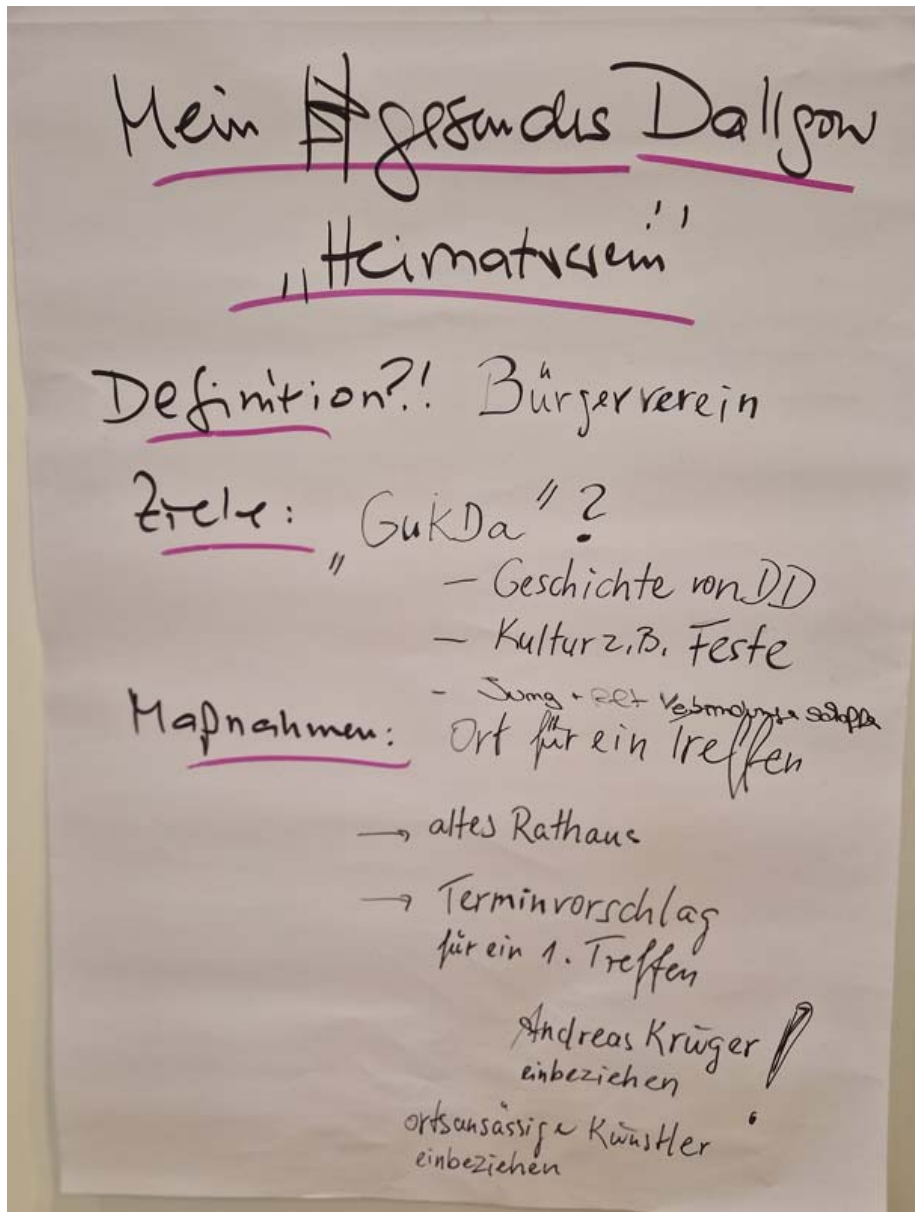 Mein gesundes Dallgow
„Heimatverein"
Definition?! Bürgerverein
Ziele: „GukDa" ?
- Geschichte von DD
- Kultur z.B. Feste
- Jung + alt
Maßnahmen: Ort für ein Treffen
→ altes Rathaus
→ Terminvorschlag
für ein 1. Treffen
Andreas Krüger !
einbeziehen
ortsansässige Künstler
einbeziehen